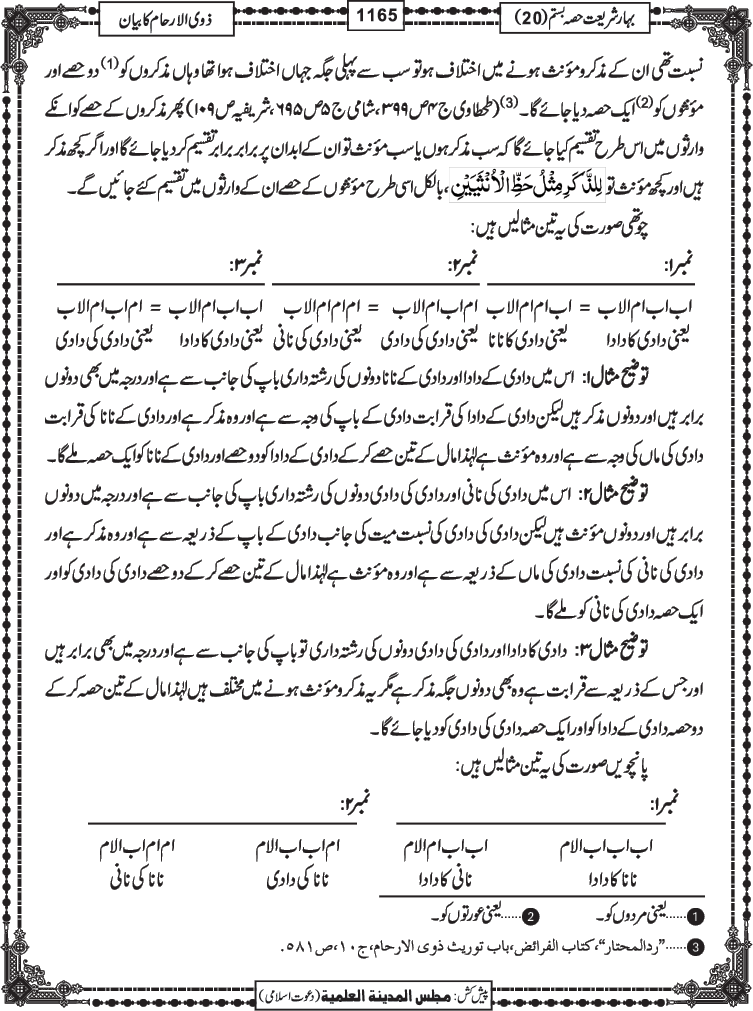 بہارِشریعت حصہ بستم (20)
1165
ذوی الارحام کا بیان
نسبت تھی ان کے مذکر و مؤنث ہونے میں اختلاف ہو تو سب سے پہلی جگہ جہاں اختلاف ہوا تھا وہاں مذکروں کو(1) دو حصے اور
مؤنثوں کو(2) ایک حصہ دیا جائے گا۔(3) (طحطاوی ج۴ ص۳۹۹، شامی ج۵ ص۶۹۵، شریفیہ ص۱۰۹) پھر مذکروں کے حصے کو انکے
وارثوں میں اس طرح تقسیم کیا جائے گا کہ سب مذکر ہوں یا سب مؤنث تو ان کے ابدان پر برابر برابر تقسیم کر دیا جائے گا اور اگر کچھ مذکر
ہیں اور کچھ مؤنث تو لِلذَّكَرِ مِثْلُ حَظِّ الْاُنْثَیَیْنِ، بالکل اسی طرح مؤنثوں کے حصے ان کے وارثوں میں تقسیم کئے جائیں گے۔
چوتھی صورت کی یہ تین مثالیں ہیں:
نمبر۱: نمبر۲: نمبر۳:
اب اب ام الاب = اب ام ام الاب ام اب ام الاب = ام ام ام الاب اب اب ام الاب = ام اب ام الاب
یعنی دادی کا دادا یعنی دادی کا نانا یعنی دادی کی دادی یعنی دادی کی نانی یعنی دادی کا دادا یعنی دادی کی دادی
توضیح مثال۱: اس میں دادی کے دادا اور دادی کے نانا دونوں کی رشتہ داری باپ کی جانب سے ہے اور درجہ میں بھی دونوں
برابر ہیں اور دونوں مذکر ہیں لیکن دادی کے دادا کی قرابت دادی کے باپ کی وجہ سے ہے اور وہ مذکر ہے اور دادی کے نانا کی قرابت
دادی کی ماں کی وجہ سے ہے اور وہ مؤنث ہے لہٰذا مال کے تین حصے کر کے دادی کے دادا کو دو حصے اور دادی کے نانا کو ایک حصہ ملے گا۔
توضیح مثال۲: اس میں دادی کی نانی اور دادی کی دادی دونوں کی رشتہ داری باپ کی جانب سے ہے اور درجہ میں دونوں
برابر ہیں اور دونوں مؤنث ہیں لیکن دادی کی دادی کی نسبت میت کی جانب دادی کے باپ کے ذریعہ سے ہے اور وہ مذکر ہے اور
دادی کی نانی کی نسبت دادی کی ماں کے ذریعہ سے ہے اور وہ مؤنث ہے لہٰذا مال کے تین حصے کر کے دو حصے دادی کی دادی کو اور
ایک حصہ دادی کی نانی کو ملے گا۔
توضیح مثال۳: دادی کا دادا اور دادی کی دادی دونوں کی رشتہ داری تو باپ کی جانب سے ہے اور درجہ میں بھی برابر ہیں
اور جس کے ذریعہ سے قرابت ہے وہ بھی دونوں جگہ مذکر ہے مگر یہ مذکر و مؤنث ہونے میں مختلف ہیں لہٰذا مال کے تین حصہ کر کے
دو حصہ دادی کے دادا کو اور ایک حصہ دادی کی دادی کو دیا جائے گا۔
پانچویں صورت کی یہ تین مثالیں ہیں:
نمبر۱: نمبر۲:
اب اب اب الام اب اب ام الام ام اب اب الام ام ام اب الام
نانا کا دادا نانی کا دادا نانا کی دادی نانا کی نانی
1......یعنی مردوں کو۔ 2......یعنی عورتوں کو۔
3......"ردالمحتار"، کتاب الفرائض، باب توریث ذوی الارحام، ج۱۰، ص۵۸۱.
پیش کش: مجلس المدینة العلمیة (دعوت اسلامی)